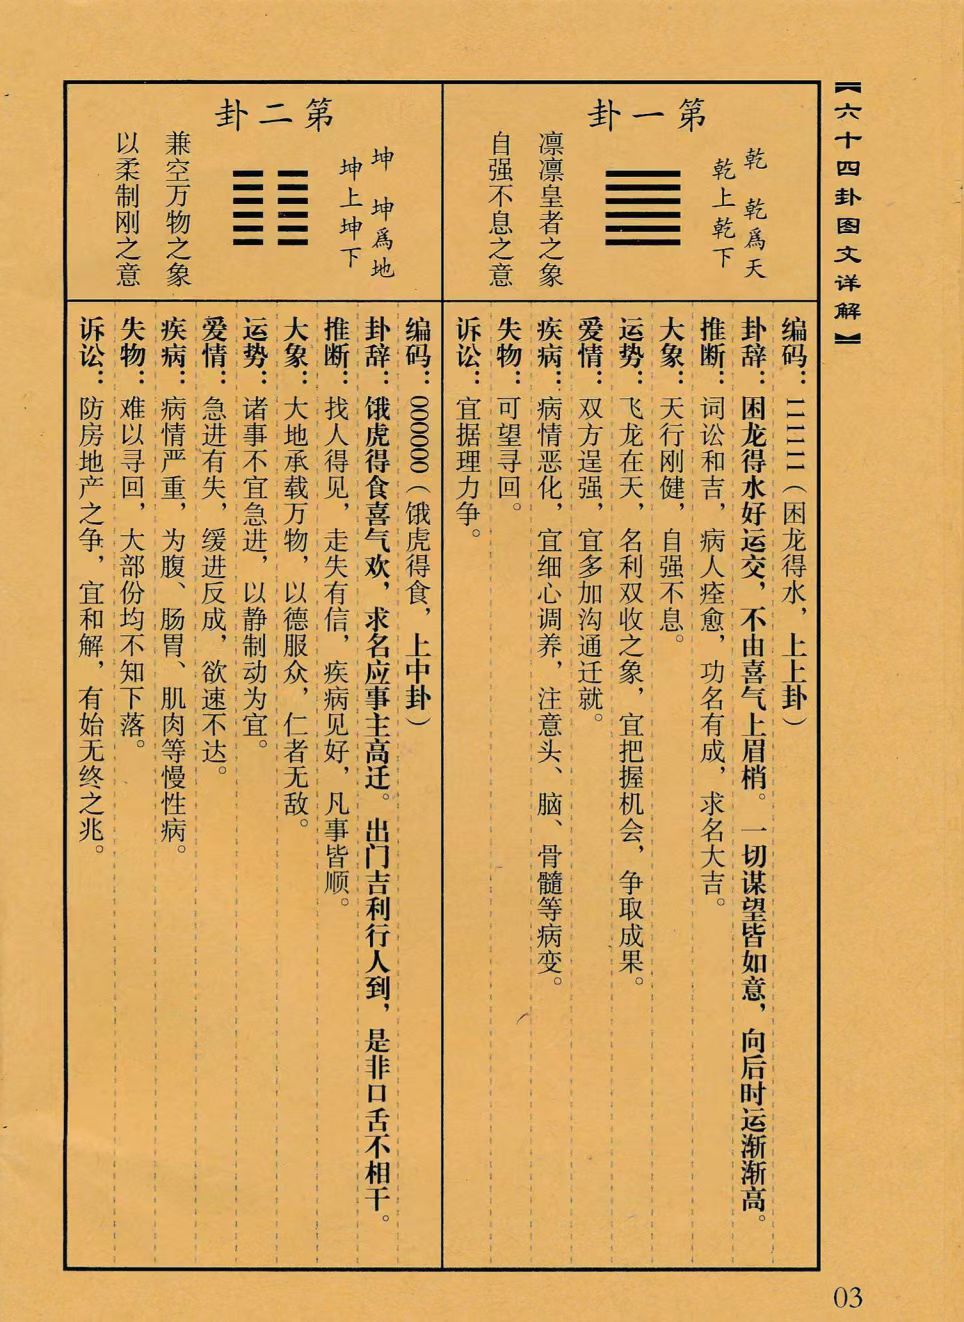 【六十四卦图文详解】
第一卦
乾 乾爲天
乾上乾下
凛凛皇者之象
自强不息之意
编码：111111（困龙得水，上上卦）
卦辞：困龙得水好运交，不由喜气上眉梢。一切谋望皆如意，向后时运渐渐高。
推断：词讼和吉，病人痊愈，功名有成，求名大吉。
大象：天行刚健，自强不息。
运势：飞龙在天，名利双收之象，宜把握机会，争取成果。
爱情：双方逞强，宜多加沟通迁就。
疾病：病情恶化，宜细心调养，注意头、脑、骨髓等病变。
失物：可望寻回。
诉讼：宜据理力争。
第二卦
坤 坤爲地
坤上坤下
兼空万物之象
以柔制刚之意
编码：000000（饿虎得食，上中卦）
卦辞：饿虎得食喜气欢，求名应事主高迁。出门吉利行人到，是非口舌不相干。
推断：找人得见，走失有信，疾病见好，凡事皆顺。
大象：大地承载万物，以德服众，仁者无敌。
运势：诸事不宜急进，以静制动为宜。
爱情：急进有失，缓进反成，欲速不达。
疾病：病情严重，为腹、肠胃、肌肉等慢性病。
失物：难以寻回，大部份均不知下落。
诉讼：防房地产之争，宜和解，有始无终之兆。
03